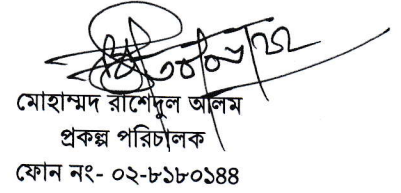 মোহাম্মদ রাশেদুল আলম
প্রকল্প পরিচালক
ফোন নং- ০২-৮১৮০১৪৪